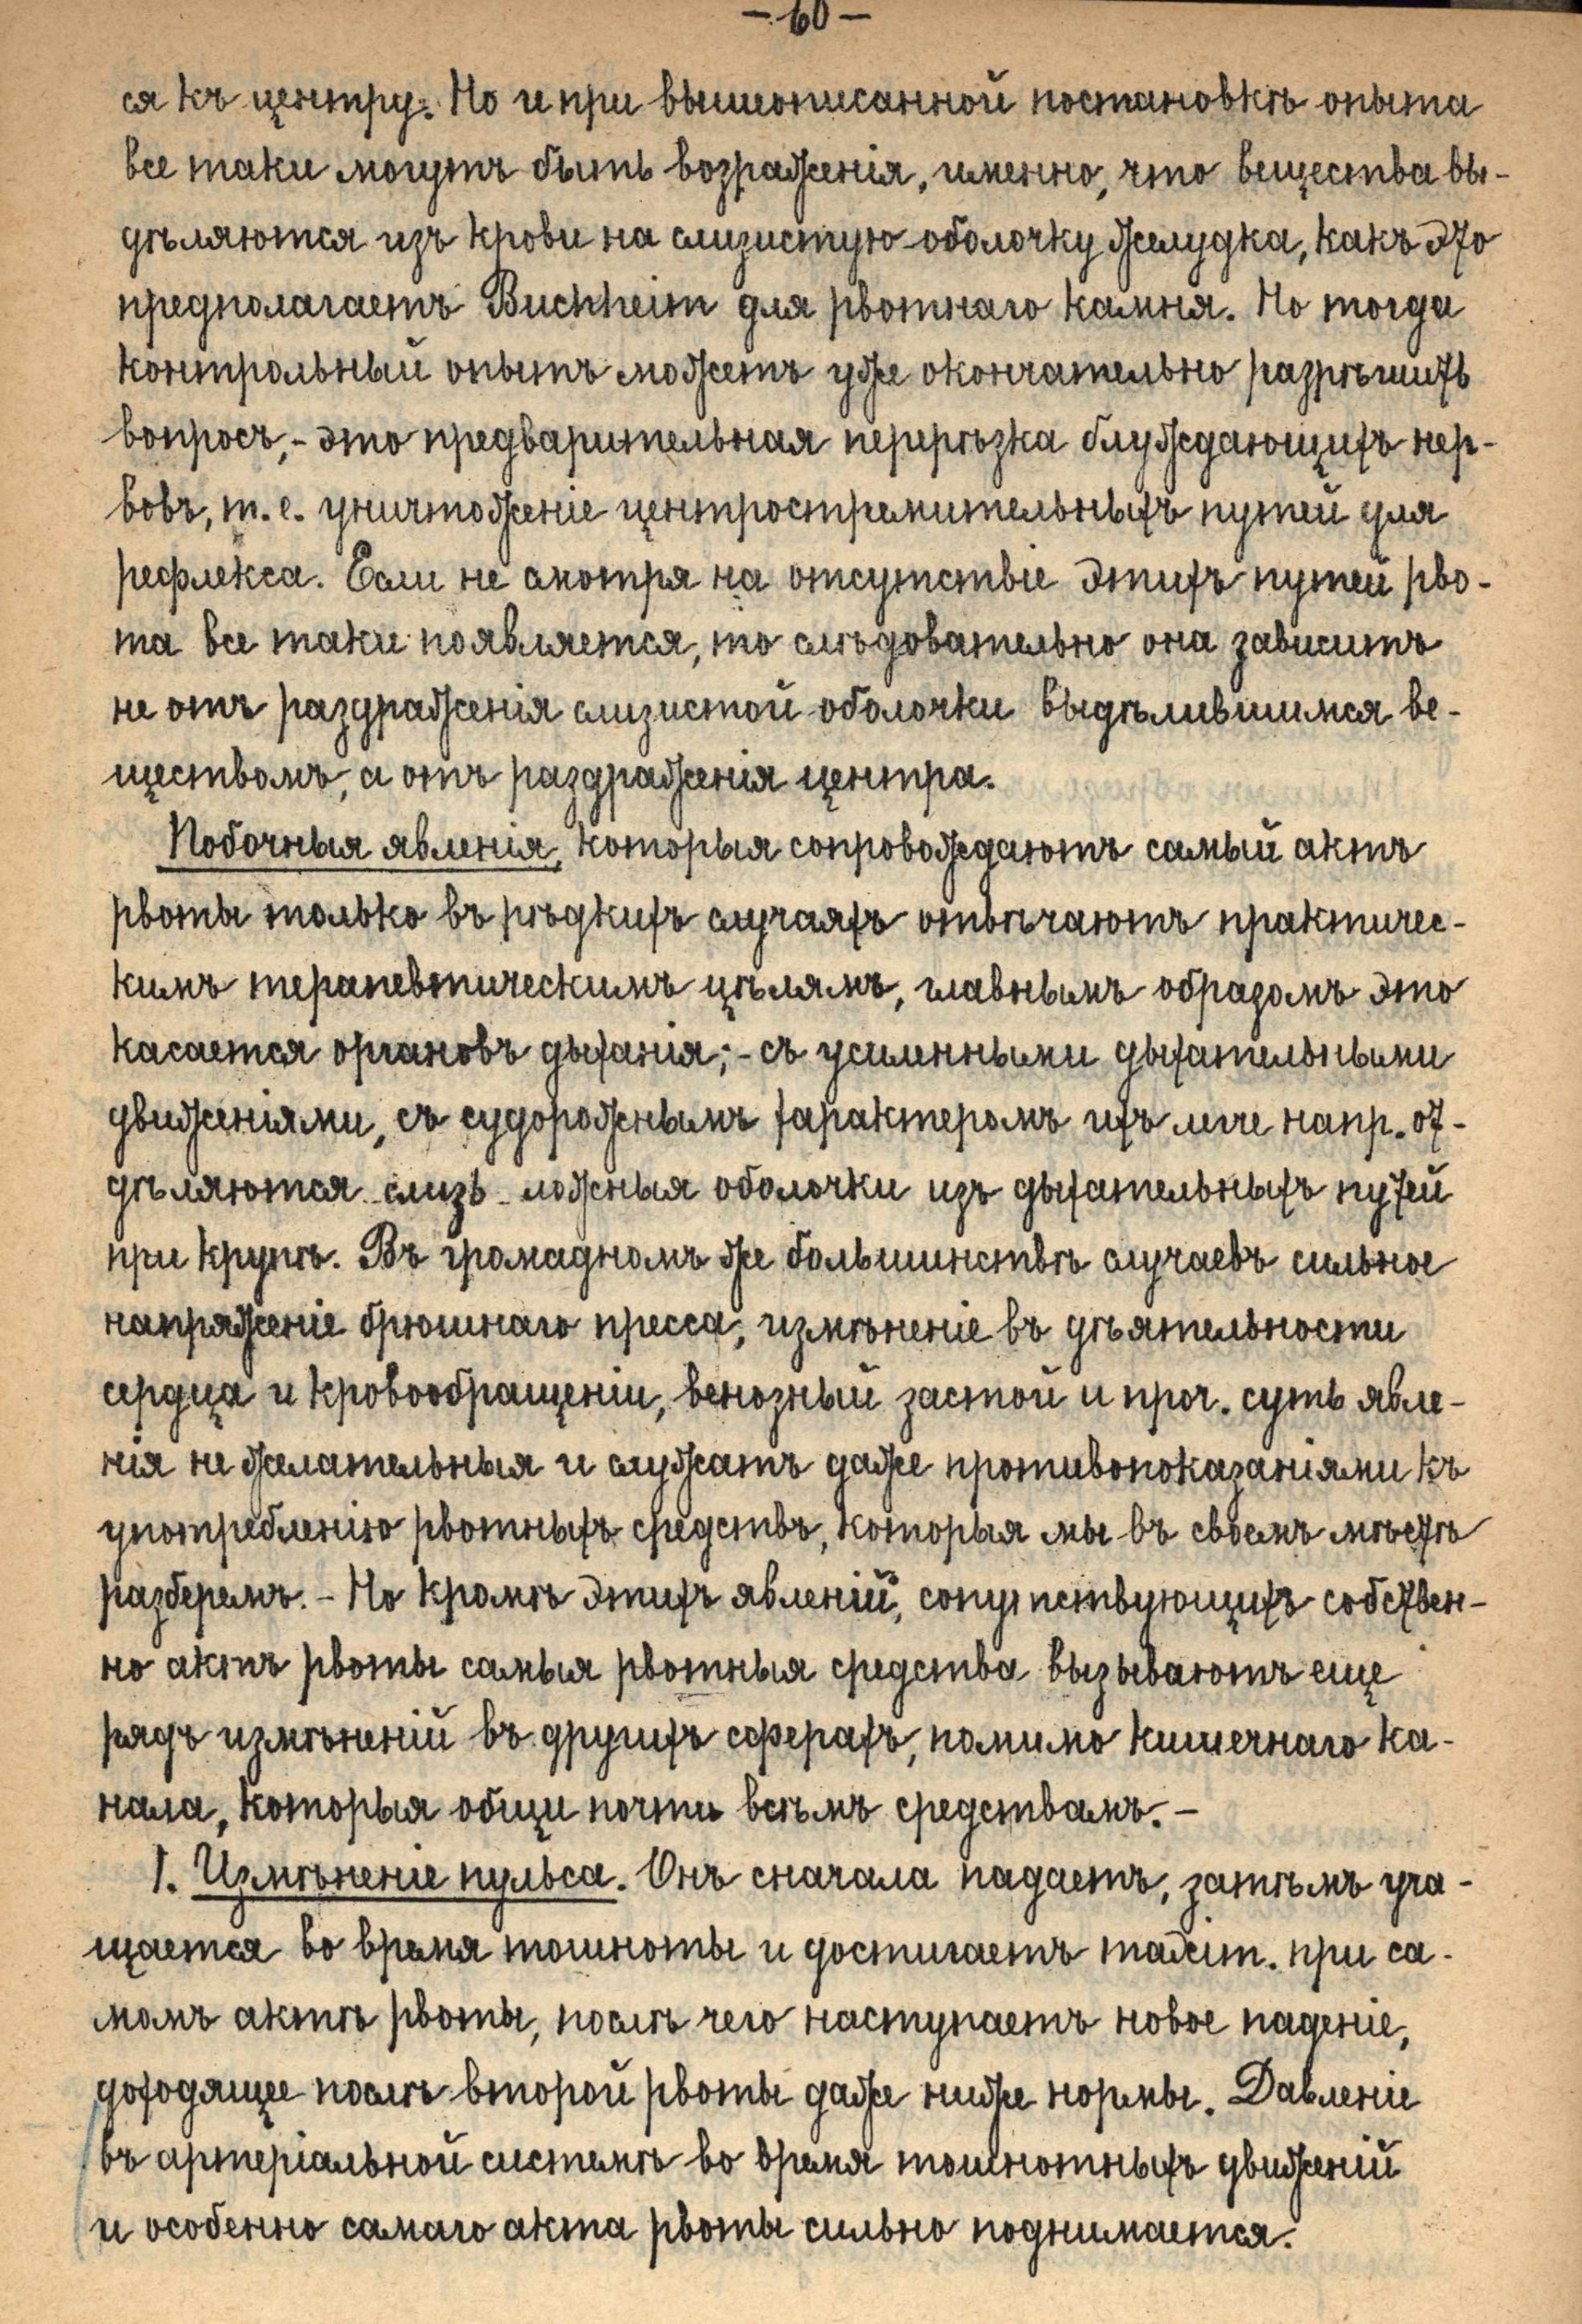 -60-
ся къ центру. Но и при вышеописанной постановкѣ опыта
все таки могутъ быть возраженія, именно, что вещества вы-
дѣляются изъ крови на слизистую оболочку желудка, какъ это
предполагаетъ Buchheim для рвотнаго камня. Но тогда
контрольный опытъ можетъ уже окончательно разрѣшить
вопросъ,- это предварительная перерѣзка блуждающихъ нер-
вовъ, т.е. уничтоженіе центростремительныхъ путей для
рефлекса. Если не смотря на отсутствіе этихъ путей рво-
та все таки появляется, то слѣдовательно она зависитъ
не отъ раздраженія слизистой оболочки выдѣлившимся ве-
ществомъ, а отъ раздраженія центра.
Побочныя явленія, которыя сопровождаютъ самый актъ
рвоты только въ рѣдкихъ случаяхъ отвѣчаютъ практичес-
кимъ терапевтическимъ цѣлямъ, главнымъ образомъ это
касается органовъ дыханія;- съ усиленными дыхательными
движеніями, съ судорожнымъ характеромъ ихъ легче напр. от-
дѣляются слизь ложныя оболочки изъ дыхательныхъ путей
при крупѣ. Въ громадномъ же большинствѣ случаевъ сильное
напряженіе брюшнаго пресса, измѣненіе въ дѣятельности
сердца и кровообращеніи, венозный застой и проч. суть явле-
нія не желательныя и служатъ даже противопоказаніями къ
употребленію рвотныхъ средствъ, которыя мы въ своемъ мѣстѣ
разберемъ.- Но кромѣ этихъ явленій, сопутствующихъ собствен-
но актъ рвоты самыя рвотныя средства вызываютъ еще
рядъ измѣненій въ другихъ сферахъ, помимо кишечнаго ка-
нала, которыя общи почти всѣмъ средствамъ.-
1. Измѣненіе пульса. Онъ сначала падаетъ, затѣмъ уча-
щается во время тошноты и достигаетъ maxim. при са-
момъ актѣ рвоты, послѣ чего наступаетъ новое паденіе,
доходящее послѣ второй рвоты даже ниже нормы. Давленіе
въ артеріальной системѣ во время тошнотныхъ движеній
и особенно самаго акта рвоты сильно поднимается.